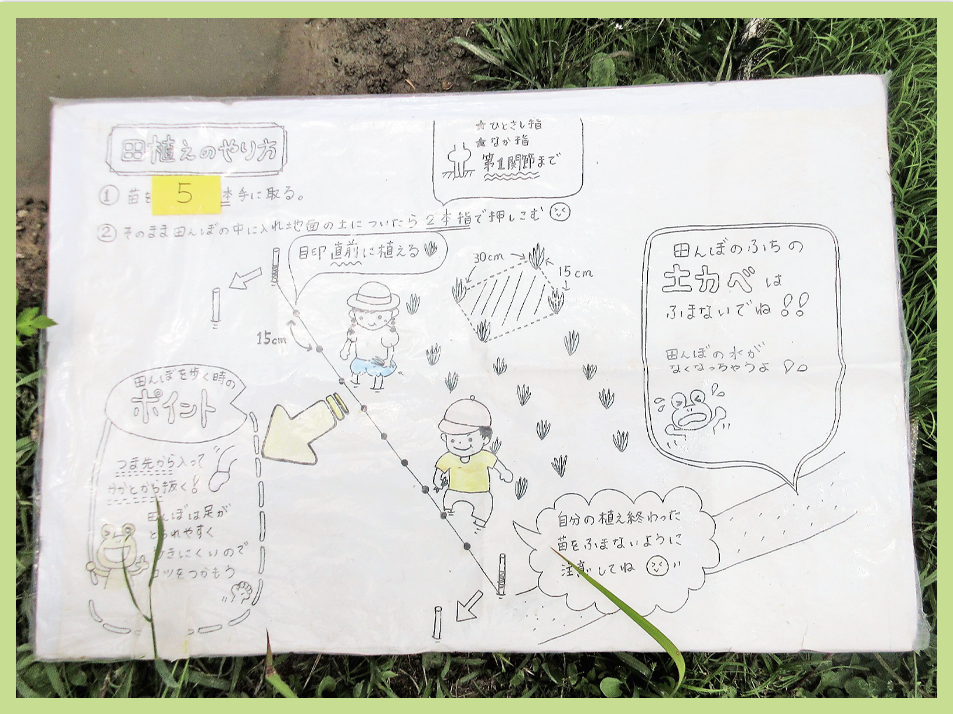 田植えのやり方
① 苗を 5 本手に取る。
② そのまま田んぼの中に入れ地面の土についたら2本指で押しこむ
☆ひとさし指
★なか指
第1関節まで
目印直前に植える
30cm
15cm
15cm
田んぼのふちの
土カベは
ふまないでね!!
田んぼの水が
なくなっちゃうよ
田んぼを歩く時の
ポイント
つま先から入って
かかとから抜く!
田んぼは足が
とられやすく
きにくいので
コツをつかもう
自分の植え終わった
苗をふまないように
注意してね